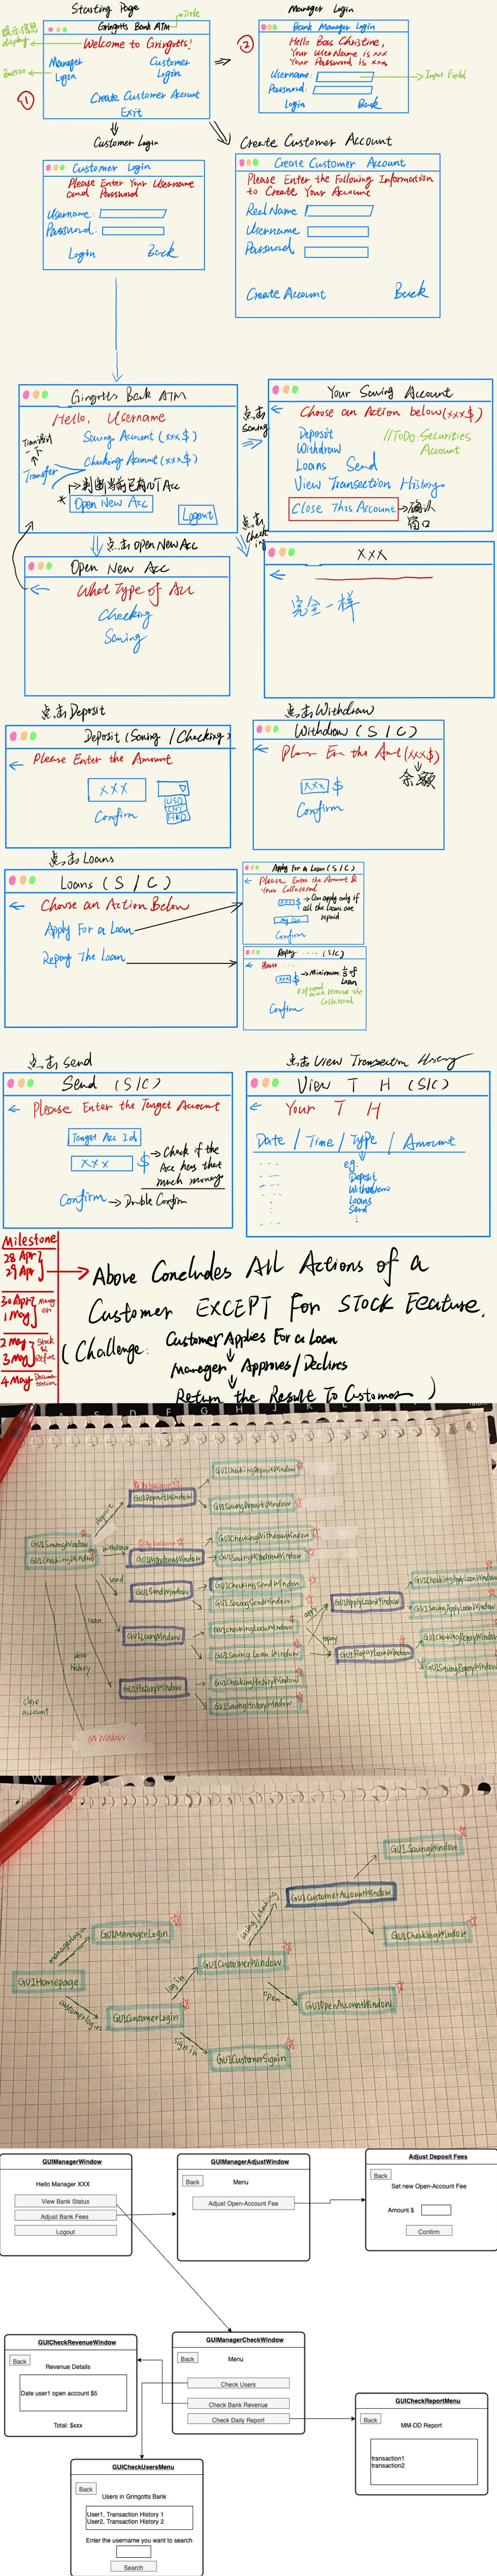 Starting Page
Title
Gringotts Bank ATM
提示信息
display
Welcome to Gringotts!
Button
Manager Login
Customer Login
①
Create Customer Account
Exit
Manager Login
②
Bank Manager Login
Hello Boss Christine,
Your UserName is xxx
Your Password is xxx
Username:
Input Field
Password:
Login
Back
Customer Login
Customer Login
Please Enter Your Username
and Password
Username:
Password:
Login
Back
Create Customer Account
Create Customer Account
Please Enter the Following Information
to Create Your Account
Real Name
Username
Password
Create Account
Back
Gingotts Bank ATM
Hello, Username
Saving Account (xxx$)
Checking Account (xxx$)
一下
Transfer
判断当前已有的Acc
*
Open New Acc
Logout
点击
Saving
Your Saving Account
Choose an Action below (xxx$)
Deposit
Withdraw
Loans Send
//ToDo: Securities
Account
View Transaction History
Close This Account
确认
窗口
点击Open New Acc
点击
Checking
Open New Acc
What Type of Acc
Checking
Saving
xxx
完全一样
点击Deposit
Deposit (Saving / Checking)
Please Enter the Amount
xxx
USD
CNY
HKD
Confirm
点击Withdraw
Withdraw (S / C)
(xxx$)
xxx $
余额
Confirm
点击Loans
Loans (S / C)
Choose an Action Below
Apply For a Loan
Repay The Loan
Apply For a Loan (S/C)
Please Enter the Amount &
Your Collateral
xxx $
Can apply only if
all the loans are
repaid
Confirm
Repay ---- (S/C)
Please ....
xxx $
Minimum: 1/5 of
Loan
remove the
Collateral
Confirm
点击Send
Send (S/C)
Please Enter the Target Account
Target Acc Id
xxx $
Check if the
Acc has that
much money
Confirm → Double Confirm
点击View Transaction History
View T H (S/C)
Your T H
Date / Time / Type / Amount
eg.
Deposit
Withdraw
Loans
Send
Milestone
28 Apr
29 Apr
30 Apr
1 May
2 May
3 May
Stock
&
Refine
4 May
Above Concludes All Actions of a
Customer EXCEPT For STOCK Feature.
(Challenge: Customer Applies For a Loan
Manager Approves/Declines
Return the Result To Customer )
GUICheckingDepositWindow
GUIDepositWindow
GUISavingDepositWindow
deposit
GUISavingWindow
GUICheckingWindow
withdraw
GUIWithdrawWindow
GUICheckingWithdrawWindow
GUISavingWithdrawWindow
send
GUISendWindow
GUICheckingSendWindow
GUISavingSendWindow
loan
GUILoanWindow
GUICheckingLoanWindow
GUISavingLoanWindow
apply
GUIApplyLoanWindow
GUICheckingApplyLoanWindow
GUISavingApplyLoanWindow
repay
GUIRepayLoanWindow
GUICheckingRepayWindow
GUISavingRepayWindow
view
history
GUIHistoryWindow
GUICheckingHistoryWindow
GUISavingHistoryWindow
close
account
No Window
GUISavingWindow
GUICustomerAccountWindow
GUICheckingWindow
saving/checking
GUIManagerLogin
managerLogin
GUIHomepage
GUICustomerWindow
log in
customerlogin
GUICustomerLogin
open
GUIOpenAccountWindow
sign in
GUICustomerSignin
GUIManagerWindow
Hello Manager XXX
View Bank Status
Adjust Bank Fees
Logout
GUIManagerAdjustWindow
Back
Menu
Adjust Open-Account Fee
Adjust Deposit Fees
Back
Set new Open-Account Fee
Amount $
Confirm
GUICheckRevenueWindow
Back
Revenue Details
Date user1 open account $5
Total: $xxx
GUIManagerCheckWindow
Back
Menu
Check Users
Check Bank Revenue
Check Daily Report
GUICheckReportMenu
Back
MM-DD Report
transaction1
transaction2
GUICheckUsersMenu
Back
Users in Gringotts Bank
User1, Transaction History 1
User2, Transaction History 2
Enter the username you want to search
Search